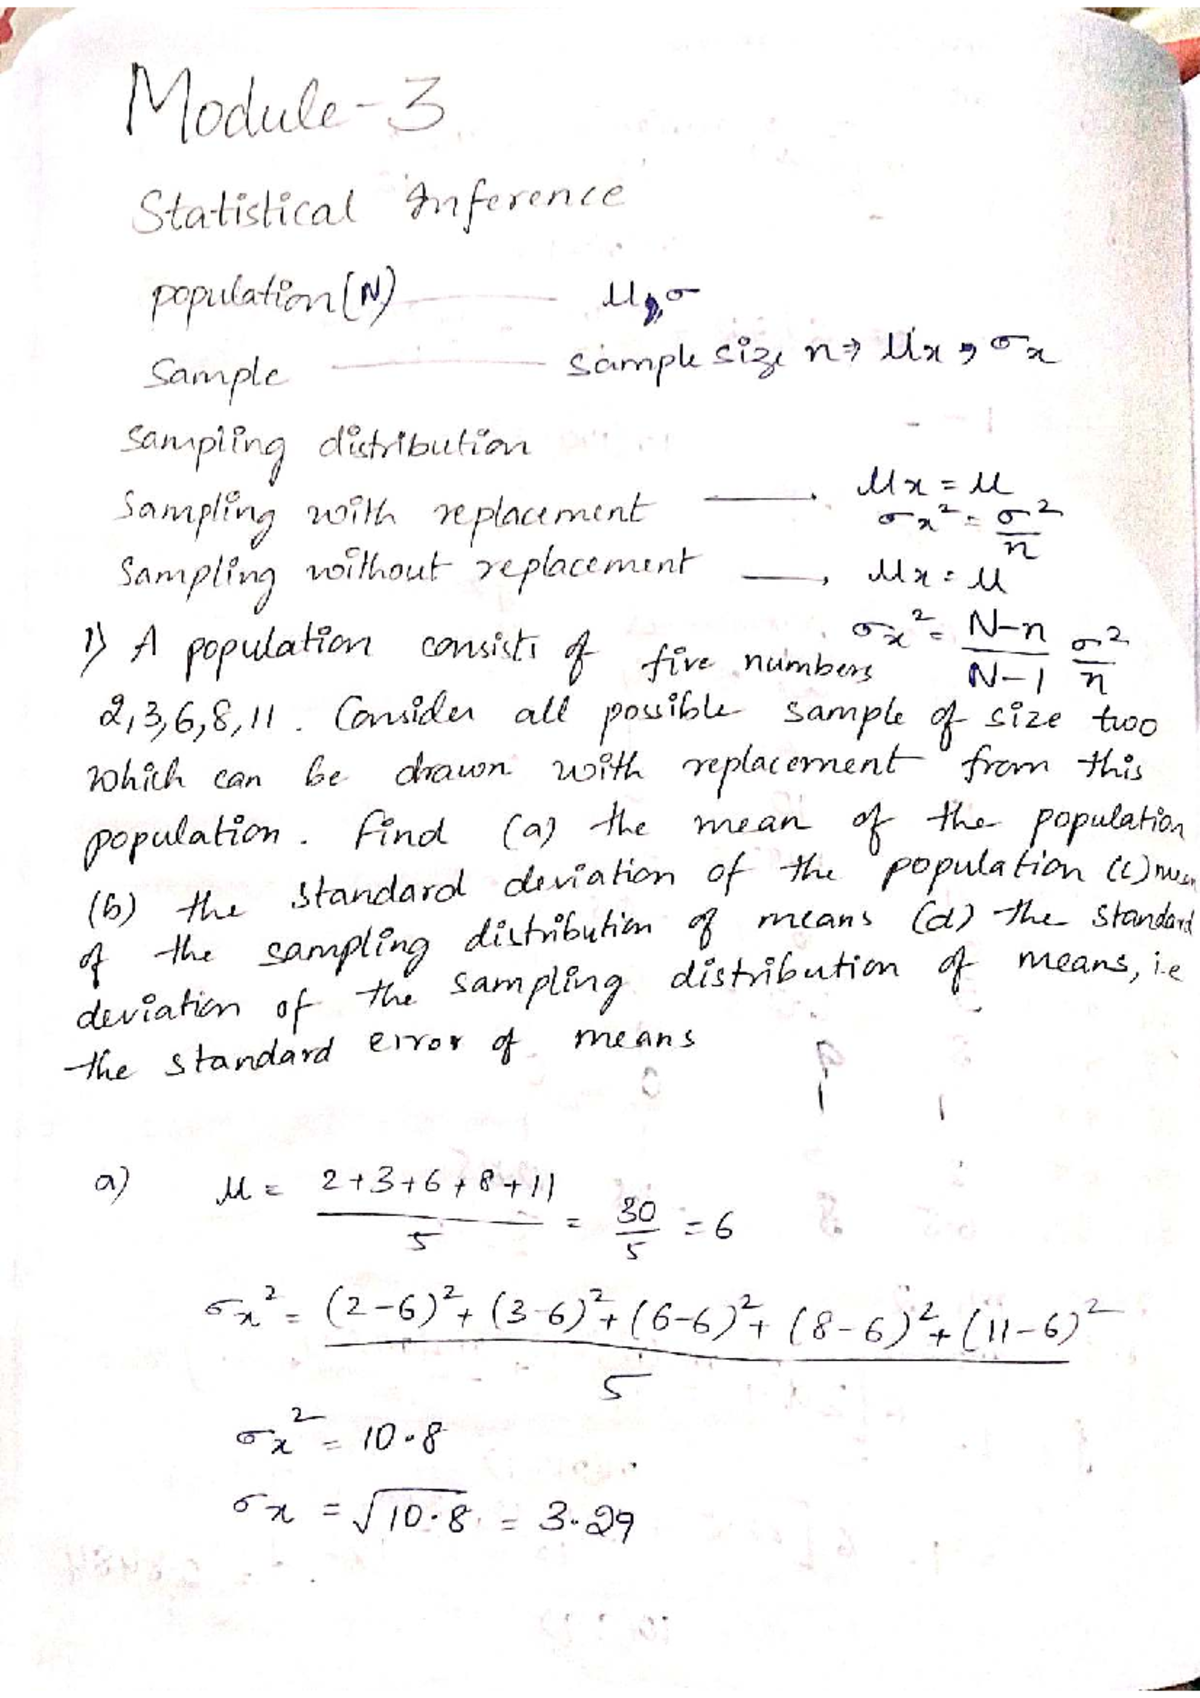 Module-3
Statistical Inference
population (N) —— μ, σ
Sample —— sample size n ⇒ μx, σx
Sampling distribution
Sampling with replacement → μx = μ
σx² = σ²/n
Sampling without replacement → μx = μ
σx² = N-n/N-1 σ²/n
1) A population consists of five numbers
2,3,6,8,11. Consider all possible sample of size two
which can be drawn with replacement from this
population. Find (a) the mean of the population
(b) the standard deviation of the population (c) mean
of the sampling distribution of means (d) the standard
deviation of the sampling distribution of means, i.e
the standard error of means
a) μ = 2+3+6+8+11/5 = 30/5 = 6
σx² = (2-6)²+(3-6)²+(6-6)²+(8-6)²+(11-6)²/5
σx² = 10.8
σx = √10.8 = 3.29